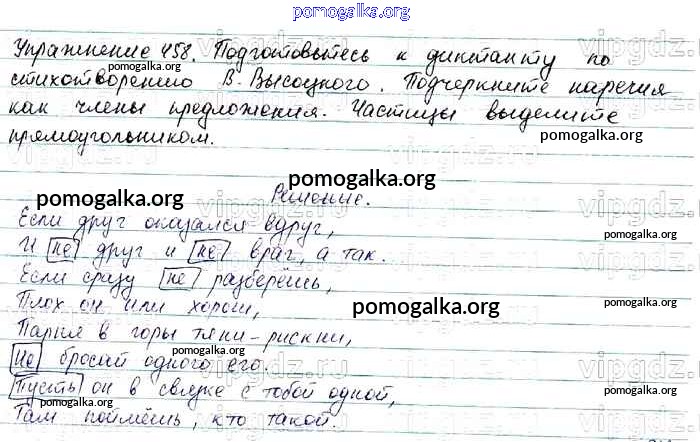 pomogalka.org
Упражнение 458. Подготовьтесь к диктанту по
стихотворению В. Высоцкого. Подчеркните наречия
как члены предложения. Частицы выделите
прямоугольником.
pomogalka.org
pomogalka.org
pomogalka.org
pomogalka.org
Решение.
Если друг оказался вдруг,
И не друг и не враг, а так.
pomogalka.org
pomogalka.org
Если сразу не разберёшь,
Плох он или хорош,
pomogalka.org
Парня в горы тяни - рискни,
pomogalka.org
Не бросай одного его
Пусть он в связке с тобой одной,
pomogalka.org
pomogalka.org
Там поймёшь, кто такой.
vipgdz.ru